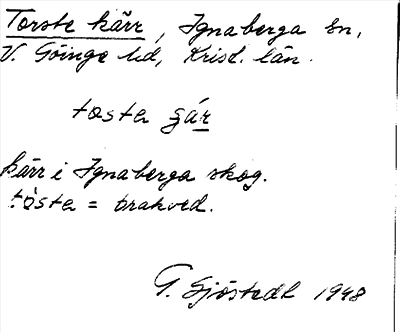 Torste kärr, Ignaberga sn,
V. Göinge hd, Krist. län.
tosta gár
kärr i Ignaberga skog.
tosta = brakved.
G. Sjöstedt 1948